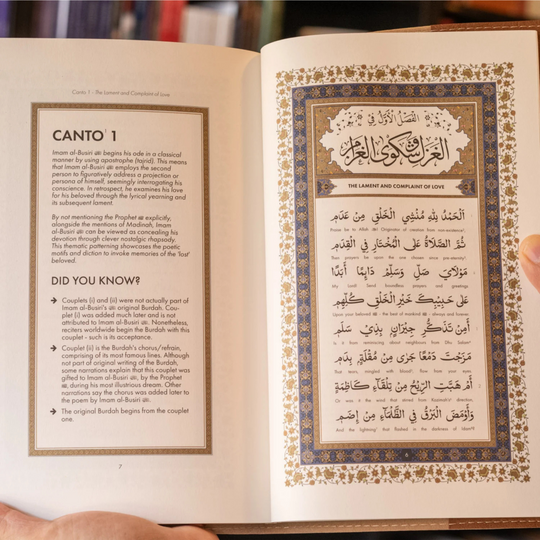 Canto 1 - The Lament and Complaint of Love
CANTO 1
Imam al-Busiri begins his ode in a classical
manner by using apostrophe (tajrid). This means
that Imam al-Busiri employs the second
person to figuratively address a projection or
persona of himself, seemingly interrogating his
conscience. In retrospect, he examines his love
for his beloved through the lyrical yearning and
its subsequent lament.
By not mentioning the Prophet ﷺ explicitly,
alongside the mentions of Madinah, Imam
al-Busiri can be viewed as concealing his
devotion through clever nostalgic rhapsody.
This thematic patterning showcases the poetic
motifs and diction to invoke memories of the 'lost'
beloved.
DID YOU KNOW?
➔ Couplets (i) and (ii) were not actually part of
Imam al-Busiri's original Burdah. Coup-
let (i) was added much later and is not
attributed to Imam al-Busiri. Nonetheless,
reciters worldwide begin the Burdah with this
couplet - such is its acceptance.
➔ Couplet (ii) is the Burdah's chorus/refrain,
comprising of its most famous lines. Although
not part of original writing of the Burdah,
some narrations explain that this couplet was
gifted to Imam al-Busiri, by the Prophet
ﷺ, during his most illustrious dream. Other
narrations say the chorus was added later to
the poem by Imam al-Busiri.
➔ The original Burdah begins from the couplet
one.
7
الفَصْلُ الأَوَّلُ فِي
الغزل وشكوى الغرام
THE LAMENT AND COMPLAINT OF LOVE
اَلْحَمْدُ لِلّٰهِ مُنْشِي الْخَلْقِ مِنْ عَدَمِ
Praise be to Allah Originator of creation from non-existence
ثُمَّ الصَّلَاةُ عَلَى الْمُخْتَارِ فِي الْقِدَمِ
Then prayers be upon the one chosen since pre-eternity
مَوْلَايَ صَلِّ وَسَلِّمْ دَائِمًا أَبَدًا
My Lord! Send boundless prayers and greetings
عَلَى حَبِيبِكَ خَيْرِ الْخَلْقِ كُلِّهِمِ
Upon your beloved - the best of mankind always and forever,
أَمِنْ تَذَكُّرِ جِيْرَانٍ بِذِيْ سَلَمِ
Is it from reminiscing about neighbours from Dhu Salam
مَزَجْتَ دَمْعًا جَرَى مِنْ مُقْلَةٍ بِدَمِ
That tears, mingled with blood, flow from your eyes
أَمْ هَبَّتِ الرِّيْحُ مِنْ تِلْقَاءِ كَاظِمَةٍ
Or was it the wind that stirred from Kazimah's direction,
وَأَوْمَضَ الْبَرْقُ فِي الظَّلْمَاءِ مِنْ إِضَمِ
And the lightning that flashed in the darkness of Idam?
6